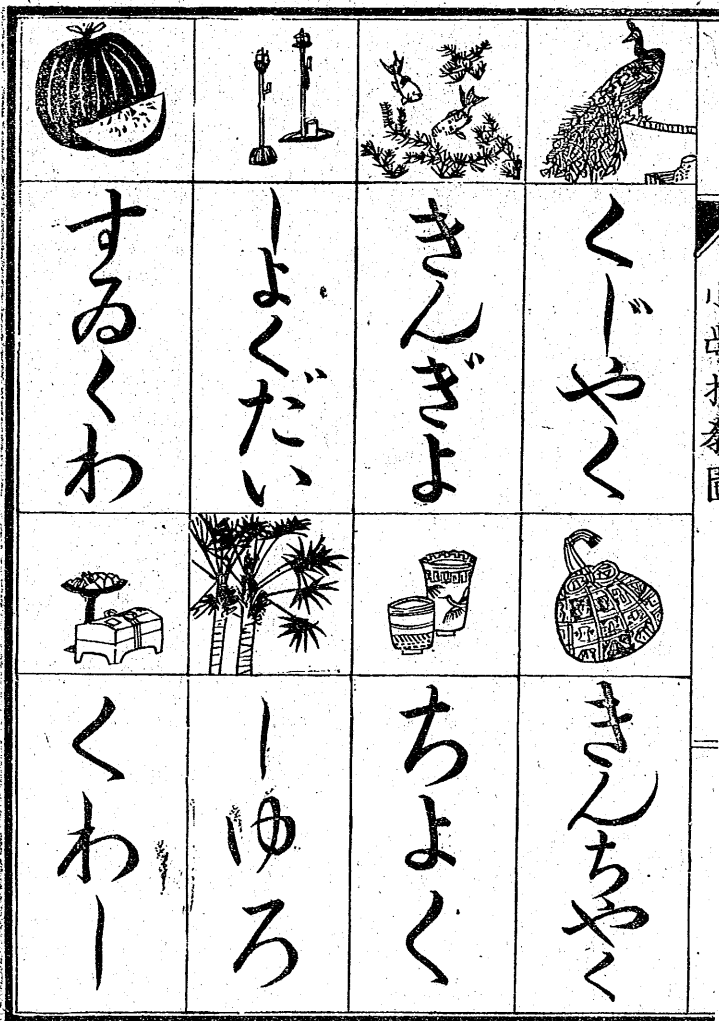 くじやく
きんぎよ
しよくだい
すゐくわ
きんちやく
ちよく
しゆろ
くわし